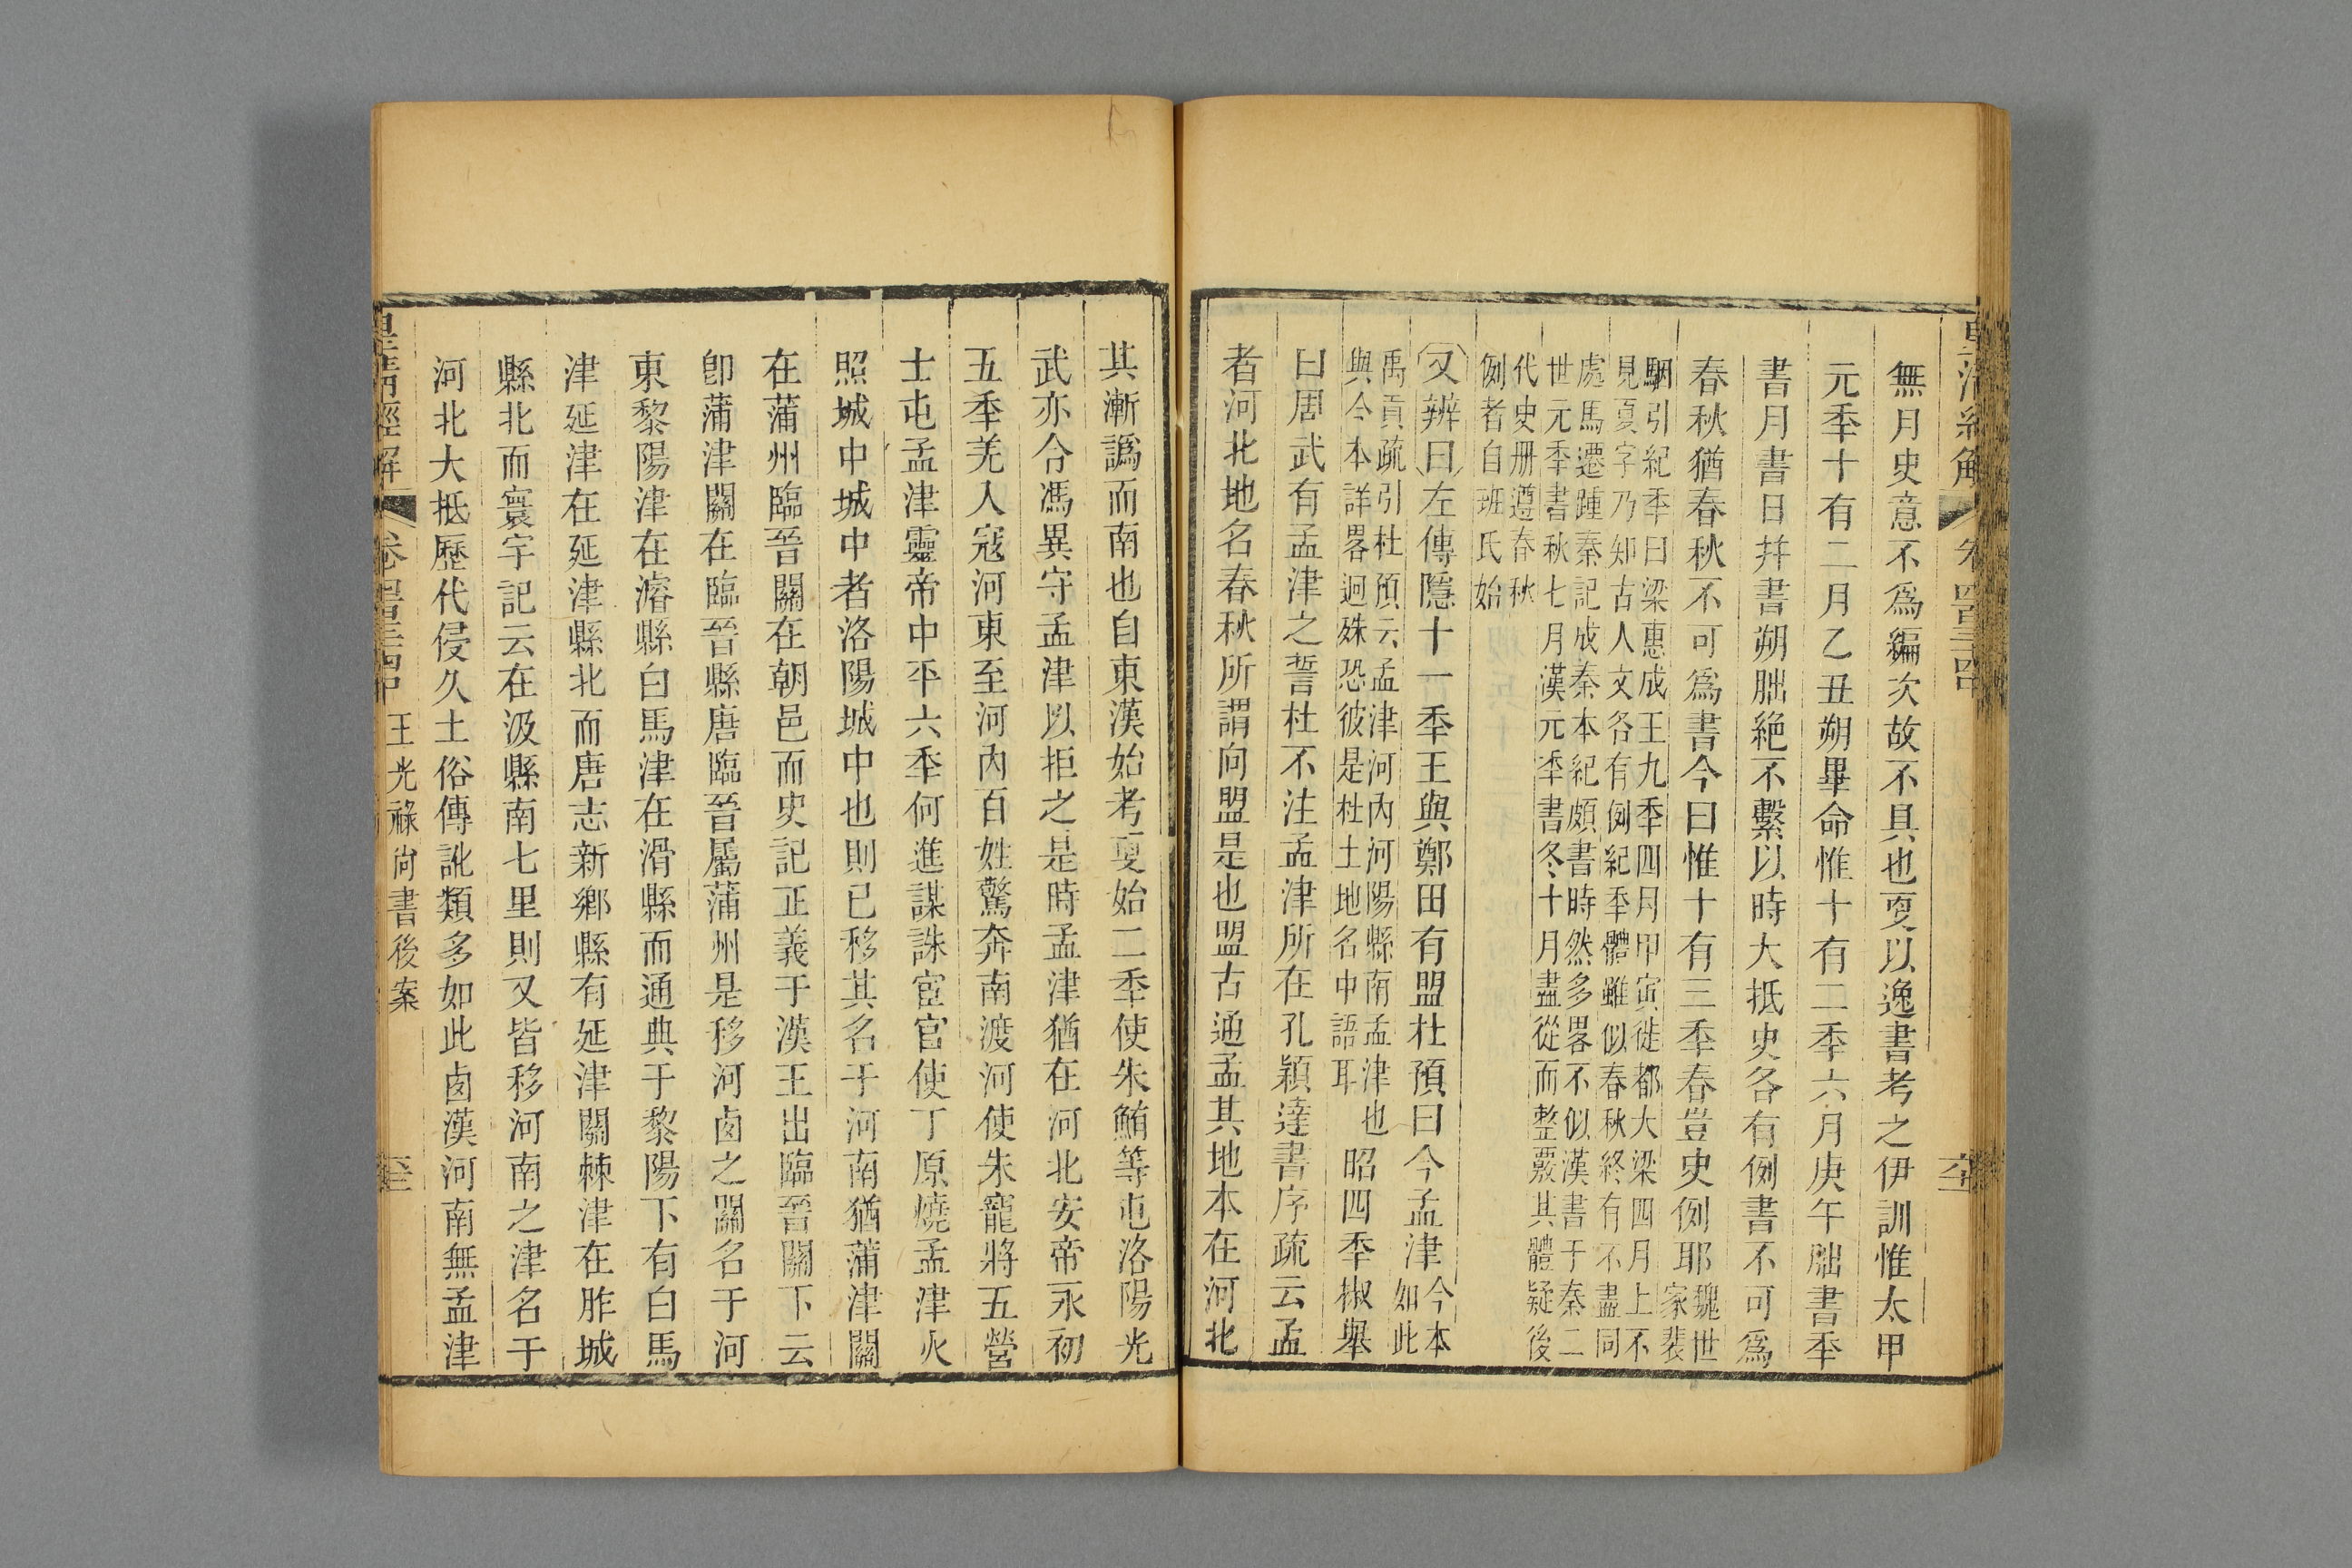 皇清經解
卷四百三十四
無月史意不爲編次故不具也叓以逸書考之伊訓惟太甲
元秊十有二月乙丑朔畢命惟十有二秊六月庚午朏書秊
書月書日幷書朔朏絶不繫以時大抵史各有例書不可爲
春秋猶春秋不可爲書今曰惟十有三秊春豈史例耶
魏世
家裴
駰引紀秊曰梁惠成王九秊四月甲寅徙都大梁四月上不
見夏字乃知古人文各有例紀秊體雖似春秋終有不盡同
處馬遷踵秦記成秦本紀頗書時然多畧不似漢書于秦二
世元秊書秋七月漢元秊書冬十月盡從而整覈其體疑後
代史册遵春秋
例者自班氏始
又辨曰左傳隱十一秊王與鄭田有盟杜預曰今孟津
今本
如此
禹貢疏引杜預云孟津河內河陽縣南孟津也
與今本詳畧迥殊恐彼是杜土地名中語耳
昭四秊椒舉
曰周武有孟津之誓杜不注孟津所在孔穎達書序疏云孟
者河北地名春秋所謂向盟是也盟古通孟其地本在河北
其漸譌而南也自東漢始考叓始二秊使朱鮪等屯洛陽光
武亦令馮異守孟津以拒之是時孟津猶在河北安帝永初
五秊羌入寇河東至河內百姓驚奔南渡河使朱寵將五營
士屯孟津靈帝中平六秊何進謀誅宦官使丁原燒孟津火
照城中城中者洛陽城中也則已移其名于河南猶蒲津關
在蒲州臨晉關在朝邑而史記正義于漢王出臨晉關下云
卽蒲津關在臨晉縣唐臨晉屬蒲州是移河卤之關名于河
東黎陽津在濬縣白馬津在滑縣而通典于黎陽下有白馬
津延津在延津縣北而唐志新鄉縣有延津關棘津在胙城
縣北而寰宇記云在汲縣南七里則又皆移河南之津名于
河北大抵歷代侵久土俗傳訛類多如此卤漢河南無孟津
皇清經解
卷四百三十四
王光祿尙書後案